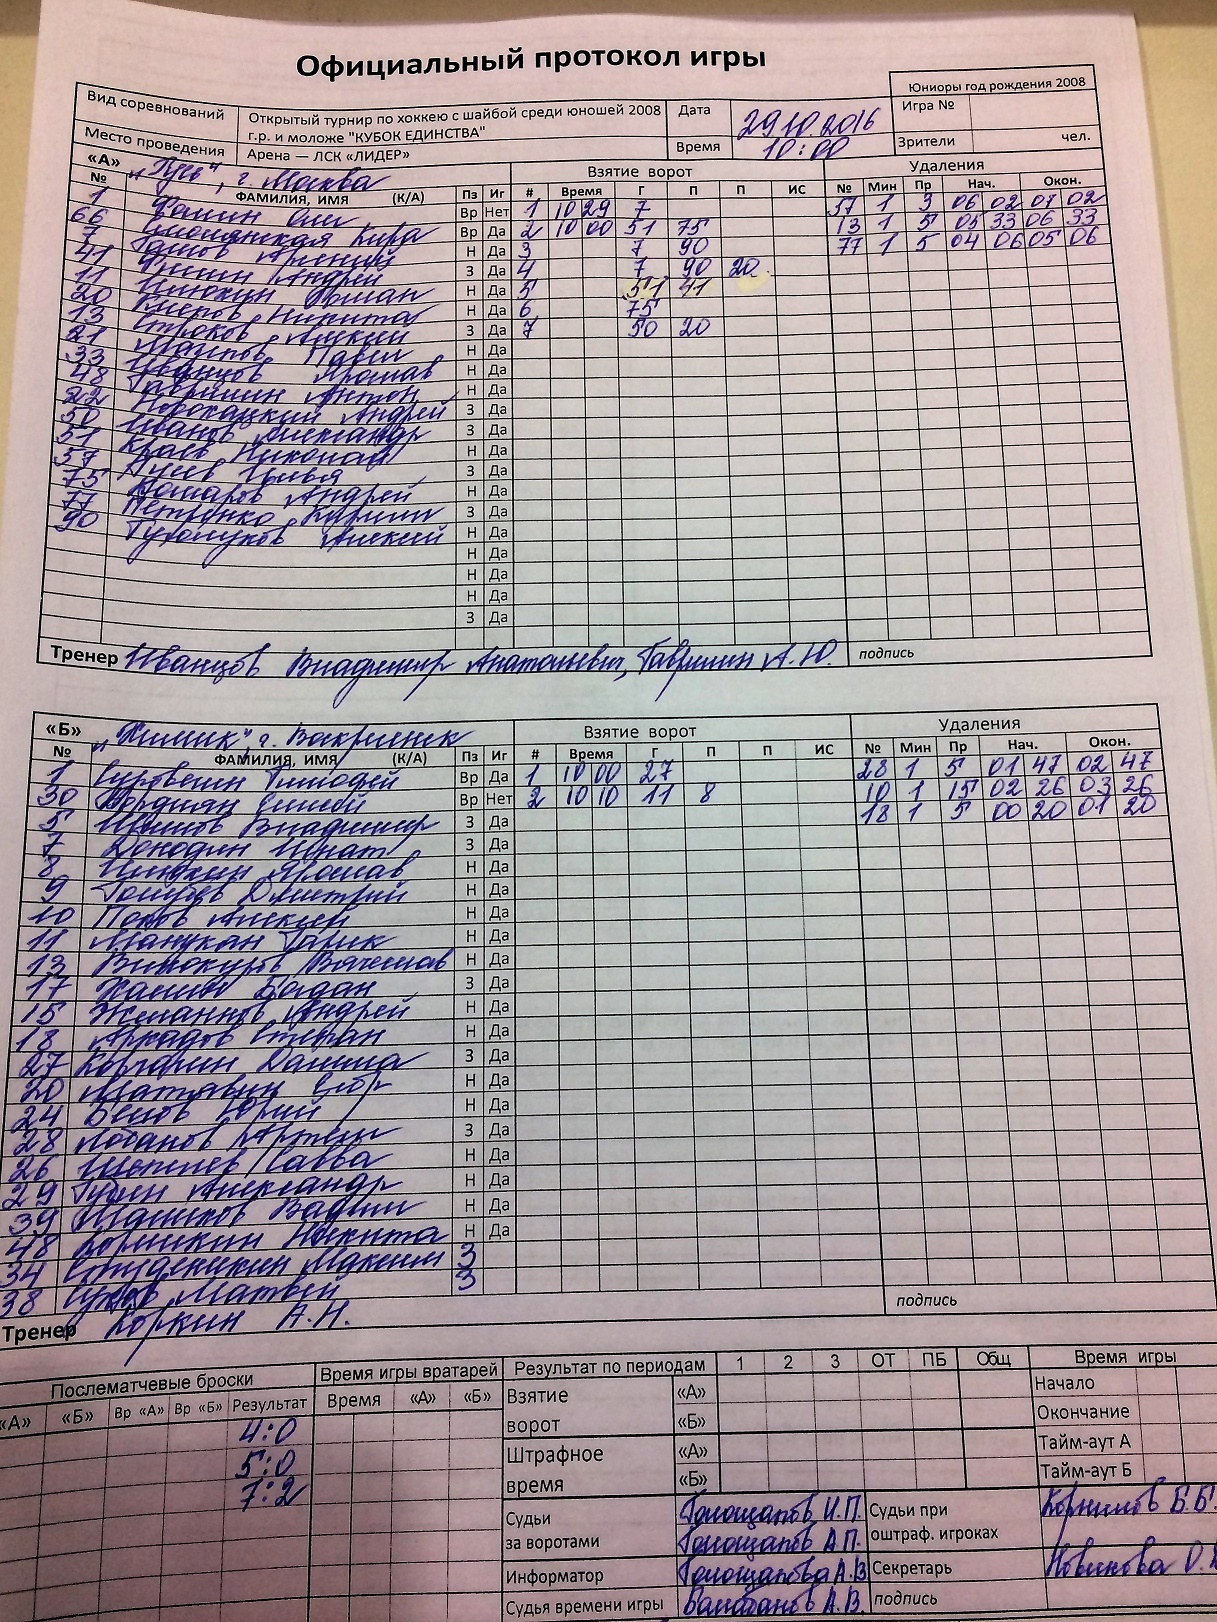 Официальный протокол игры
Юниоры год рождения 2008
Вид соревнований Открытый турнир по хоккею с шайбой среди юношей 2008 г.р. и моложе "КУБОК ЕДИНСТВА" Дата 29 10 2016 Игра №
Место проведения Арена — ЛСК «ЛИДЕР» Время 10:00 Зрители чел.
«А» г. Москва Взятие ворот Удаления
№ ФАМИЛИЯ, ИМЯ (К/А) Пз Иг # Время Г П П ИС № Мин Пр Нач. Окон.
1 Вр Нет 1 10 29 7 37 1 3 06 02 07 02
66 Кира Вр Да 2 10 00 51 75 13 1 5 05 33 06 33
7 Н Да 3 7 90 77 1 5 04 06 05 06
41 Андрей З Да 4 7 90 20
11 Н Да 5 51 41
20 Никита Н Да 6 75
13 Строков Алексей З Да 7 50 20
21 Павел Н Да
33 Иванцов Ярослав Н Да
48 Гаврилин Антон Н Да
22 Андрей З Да
50 Иванов Александр З Да
51 Краев Николай Н Да
57 Гусев Илья З Да
75 Комаров Андрей Н Да
77 Петренко Кирилл З Да
90 Алексей Н Да
Н Да
Н Да
Н Да
З Да
Тренер Иванцов Владимир Анатольевич, Гаврилин А.Ю. подпись
«Б» "Химик", г. Воскресенск Взятие ворот Удаления
№ ФАМИЛИЯ, ИМЯ (К/А) Пз Иг # Время Г П П ИС № Мин Пр Нач. Окон.
1 Тимофей Вр Да 1 10 00 27 28 1 5 01 47 02 47
30 Вр Нет 2 10 10 11 8 10 1 15 02 26 03 26
5 Владимир З Да 18 1 5 00 20 01 20
7 Игнат З Да
8 Ярослав Н Да
9 Голубев Дмитрий Н Да
10 Попов Алексей Н Да
11 Манукян Гарик Н Да
13 Винокуров Вячеслав Н Да
17 Богдан З Да
15 Андрей Н Да
18 Аркадов Степан Н Да
27 Данила З Да
20 Егор Н Да
24 Белов Юрий Н Да
28 Лобанов Артем З Да
26 Савва Н Да
29 Александр Н Да
39 Вадим Н Да
48 Никита Н Да
34 Максим З
38 Матвей З
Тренер Коркин А.Н. подпись
Послематчевые броски Время игры вратарей Результат по периодам 1 2 3 ОТ ПБ Общ Время игры
«А» «Б» Вр «А» Вр «Б» Результат Время «А» «Б» Взятие ворот «А» Начало
4:0 «Б» Окончание
5:0 Штрафное время «А» Тайм-аут А
7:2 «Б» Тайм-аут Б
Судьи за воротами Голощапов И.П. Судьи при оштраф. игроках Корнилов Б.Б.
Голощапов А.П.
Информатор Голощапова А.В Секретарь Новикова О.
Судья времени игры Балабанов А.В. подпись